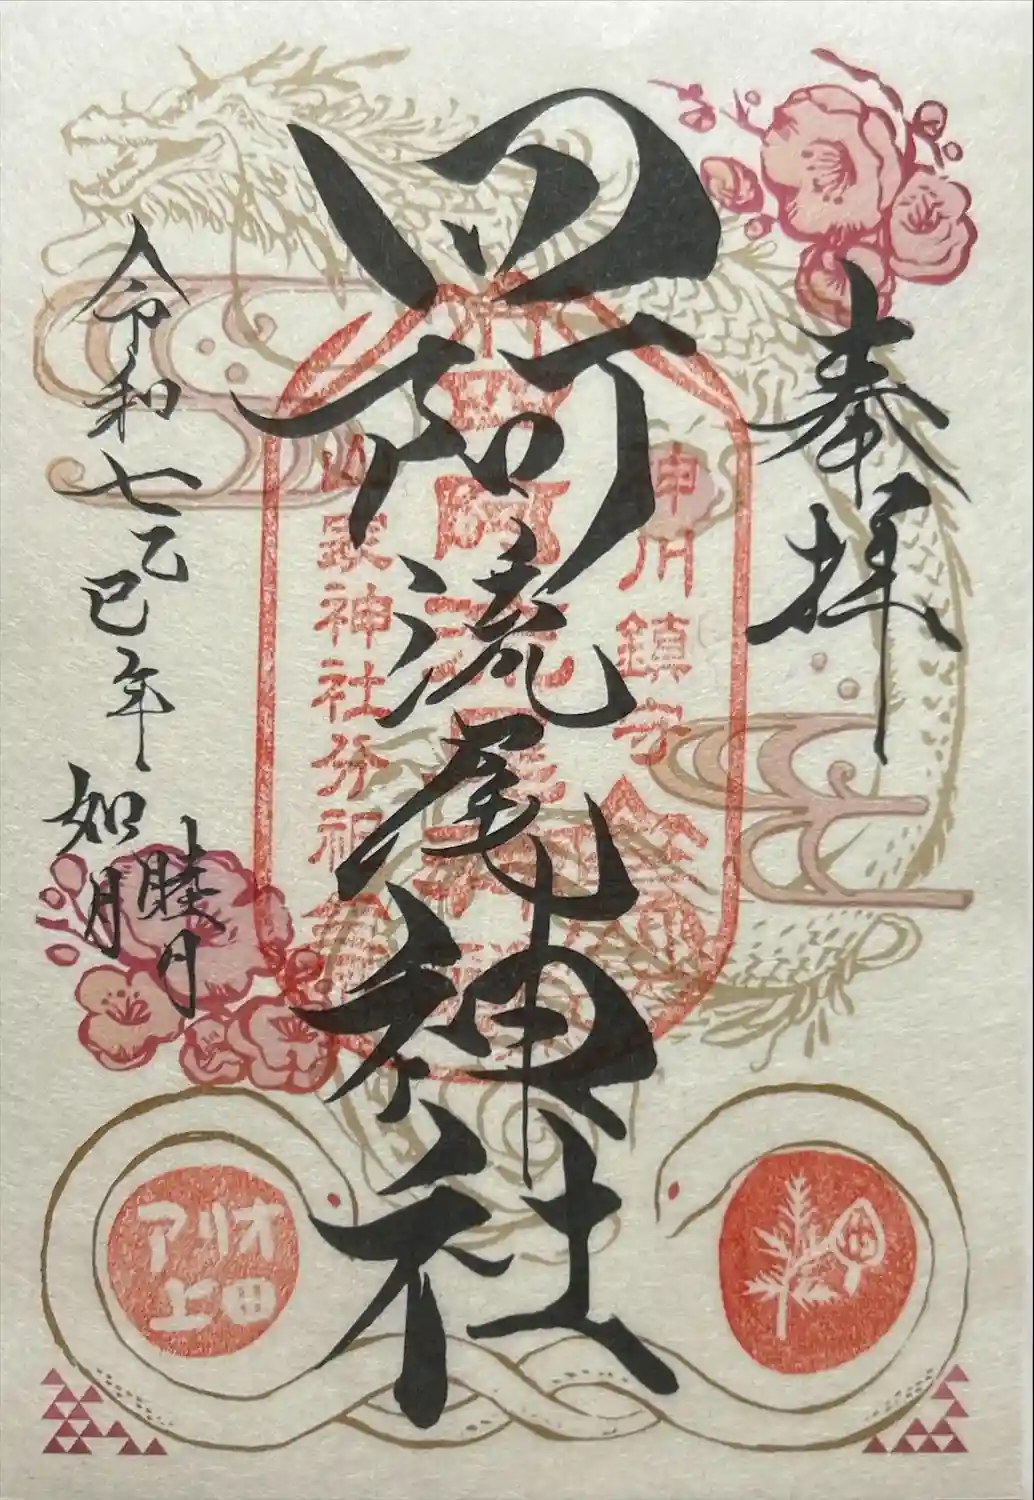 奉拝
四阿流尾神社
令和七乙巳年
睦月
如月
神川鎮守
山家神社分祀
アリオ
上田